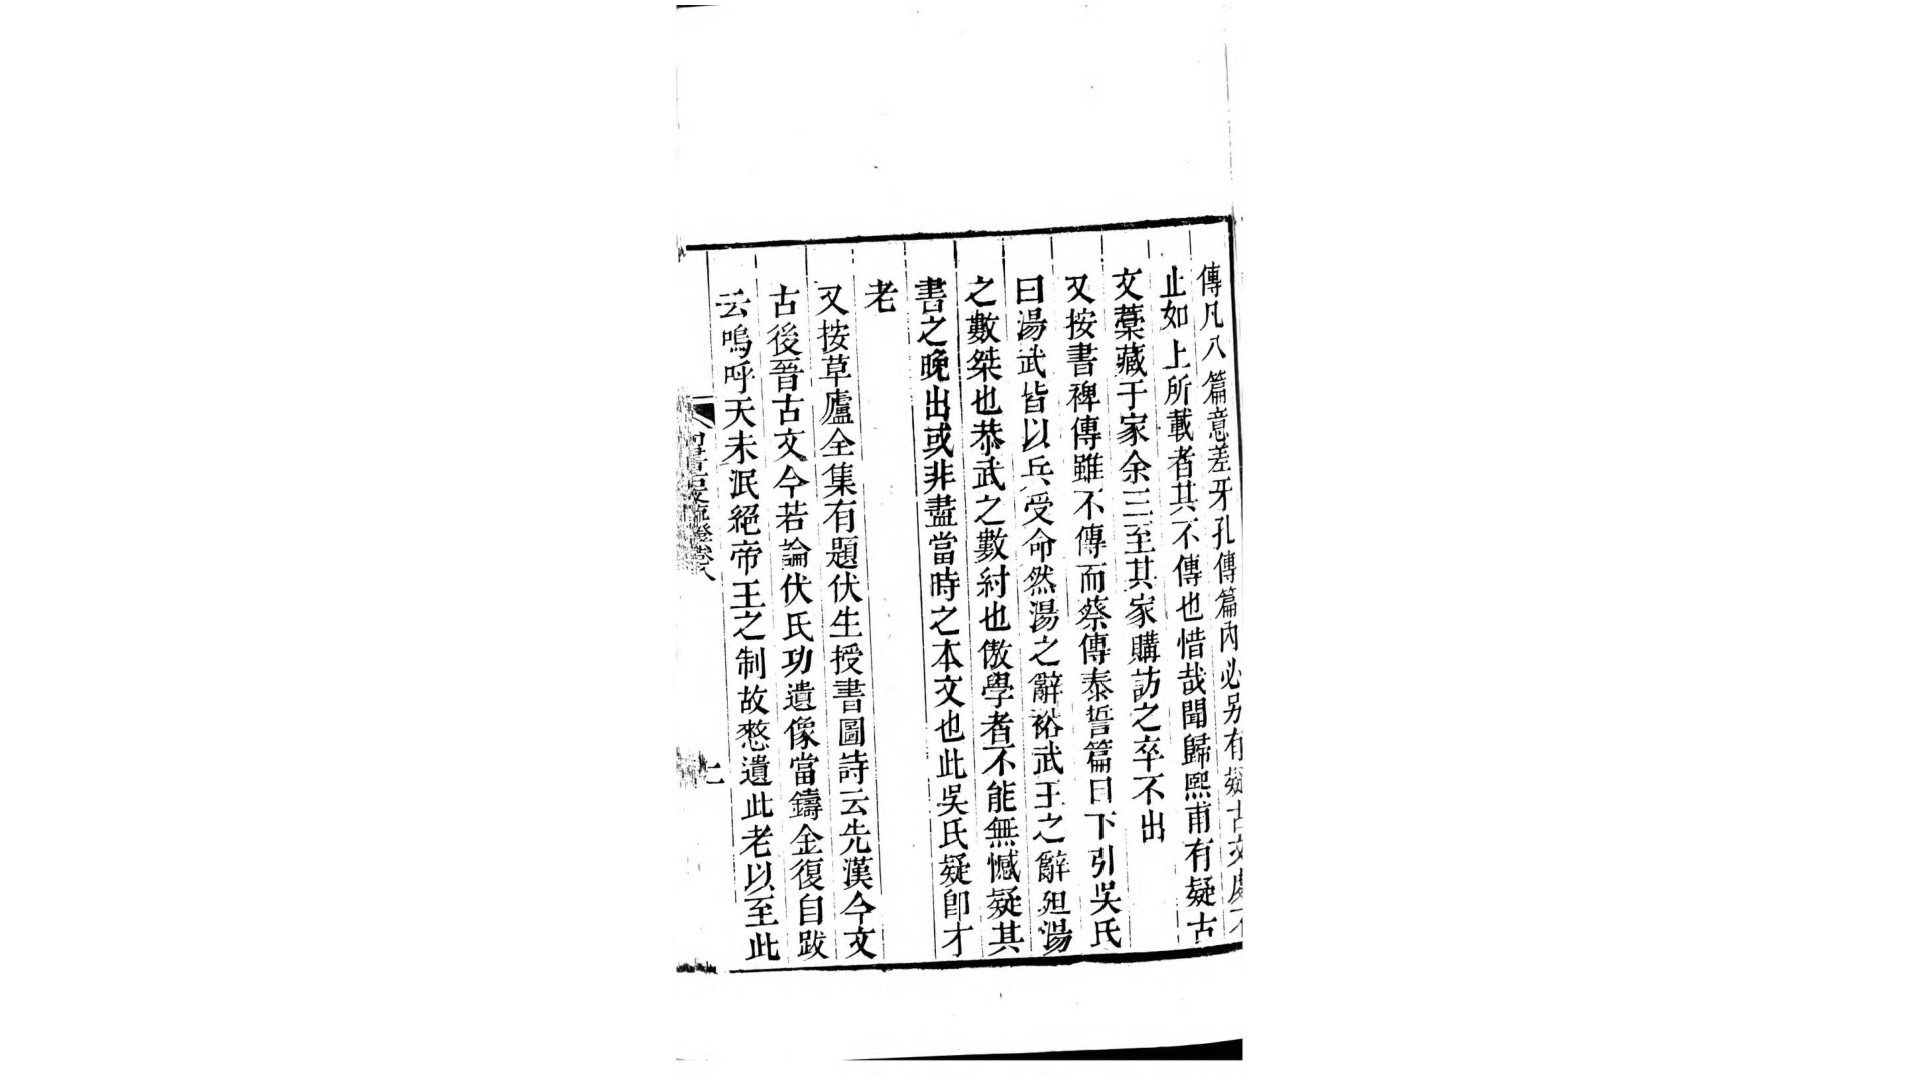 傳凡八篇意差牙孔傳篇內必別有疑古文處不
止如上所載者其不傳也惜哉聞歸熙甫有疑古
文藳藏于家余三至其家購訪之卒不出
又按書裨傳雖不傳而蔡傳泰誓篇目下引吳氏
曰湯武皆以兵受命然湯之辭裕武王之辭廹湯
之數桀也恭武之數紂也傲學者不能無憾疑其
書之晚出或非盡當時之本文也此吳氏疑卽才
老
又按草廬全集有題伏生授書圖詩云先漢今文
古後晉古文今若論伏氏功遺像當鑄金復自跋
云嗚呼天未泯絕帝王之制故憖遺此老以至此
尚書古文疏證卷八
七